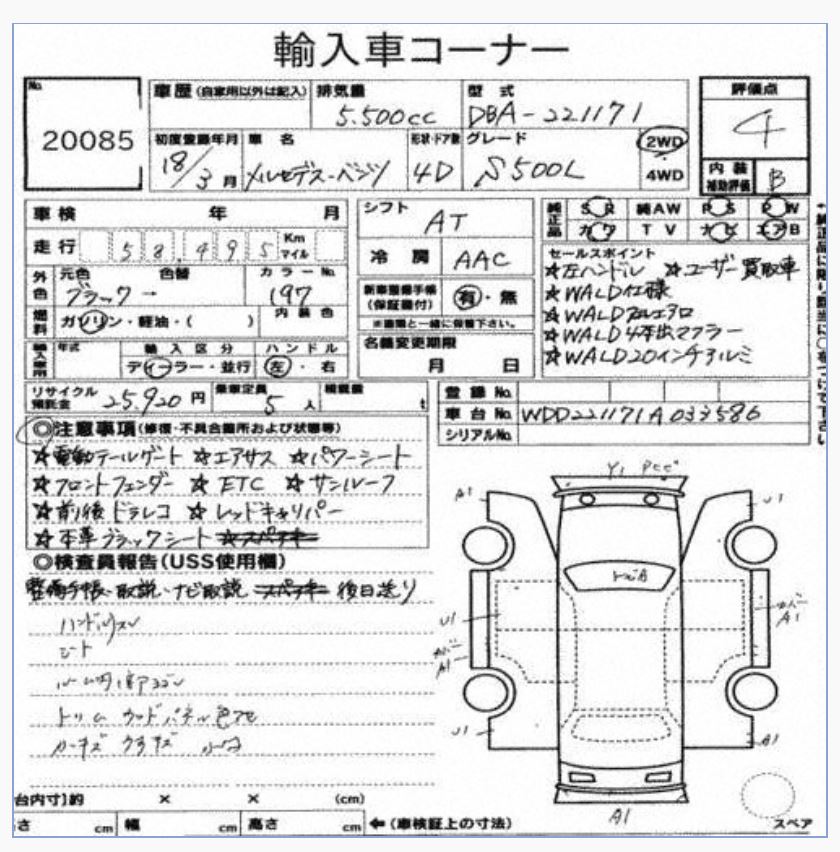 輸入車コーナー
No.
20085
車歴 (自家用以外は記入) 排気量 型式 評価点
5.500cc DBA-221171 4
初度登録年月 車名 形状・ドア数 グレード 2WD
18/3月 メルセデス・ベンツ 4D S500L 4WD
内装補助評価 B
車検 年 月 シフト AT 純正品 SR 純AW PS PW
カワ TV ナビ エアB
走行 58,495 Km マイル 冷房 AAC セールスポイント
☆左ハンドル ☆ユーザー買取車
外色 元色 色替 カラーNo.
ブラック 197 新車整備手帳(保証書付) 有・無 ☆WALD仕様
燃料 ガソリン・軽油・( ) 内装色 ※書類と一緒に保管下さい。 ☆WALDフルエアロ
☆WALD4本出マフラー
年式 輸入区分 ハンドル 名義変更期限 ☆WALD20インチアルミ
ディーラー・並行 左・右 月 日
リサイクル預託金 25.920円 乗車定員 5人 積載量 t 登録No.
車台No. WDD221171A033586
◎注意事項(修復・不具合箇所および状態等) シリアルNo.
☆電動テールゲート ☆エアサス ☆パワーシート
☆フロントフェンダー ☆ETC ☆サンルーフ
☆前後ドラレコ ☆レッドキャリパー
☆本革ブラックシート ☆スペアキー
◎検査員報告(USS使用欄)
整備手帳・取説・ナビ取説 スペアキー 後日送り
ハンドルスレ
シート
トリム ウッドパネル色アセ
Y1
A1 U1
トビA
U1 カバーA1
カバーA1
U1 A1
A1
スペア
台内寸]約 × × (cm)
さ cm 幅 cm 高さ cm ←(車検証上の寸法)